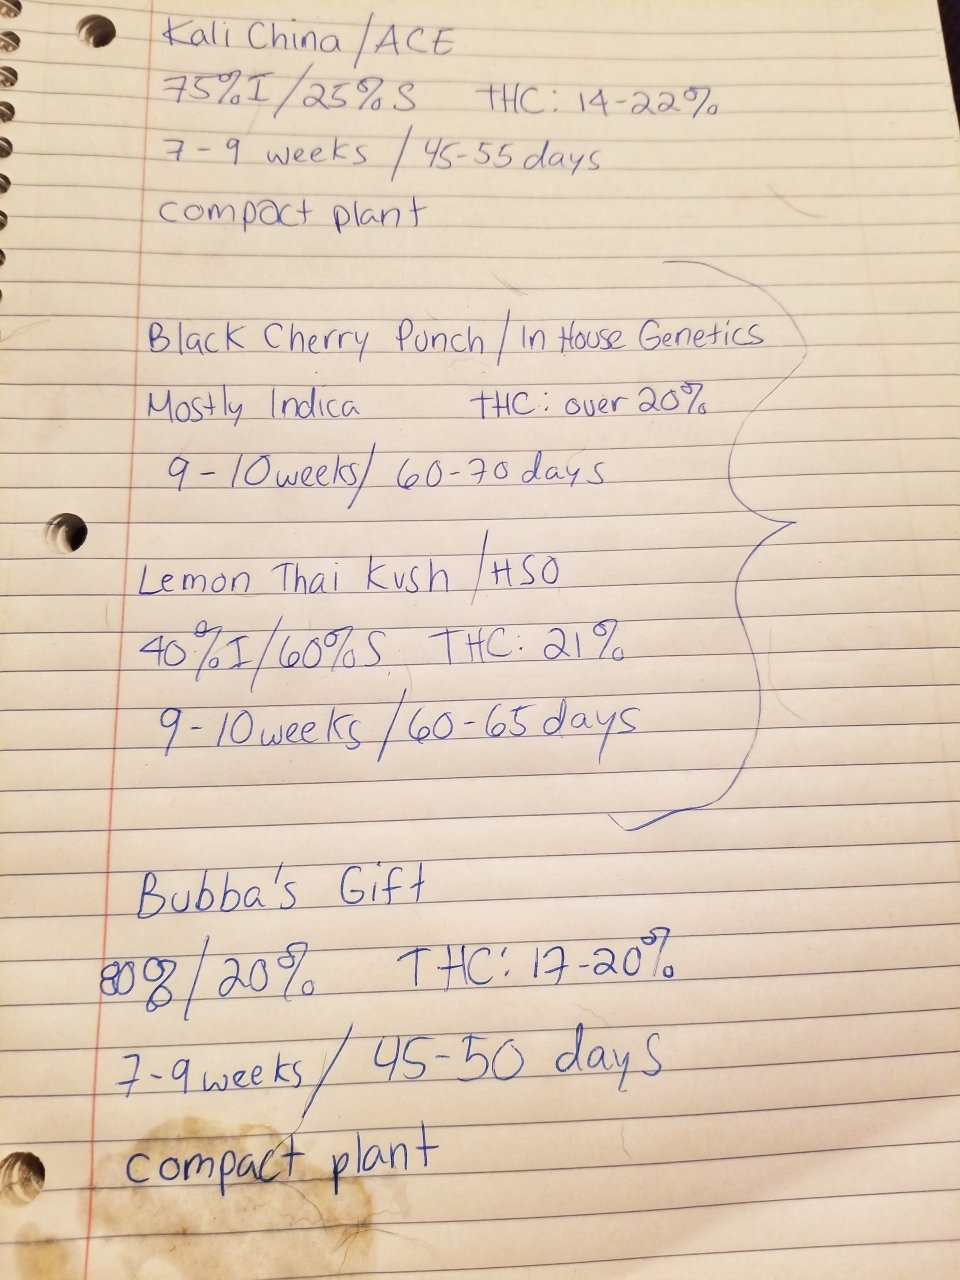 Kali China / ACE
75% I / 25% S THC: 14-22%
7-9 weeks / 45-55 days
compact plant
Black Cherry Punch / In House Genetics
Mostly Indica THC: over 20%
9-10 weeks / 60-70 days
Lemon Thai Kush / HSO
40% I / 60% S THC: 21%
9-10 weeks / 60-65 days
Bubba's Gift
80% / 20% THC: 17-20%
7-9 weeks / 45-50 days
compact plant